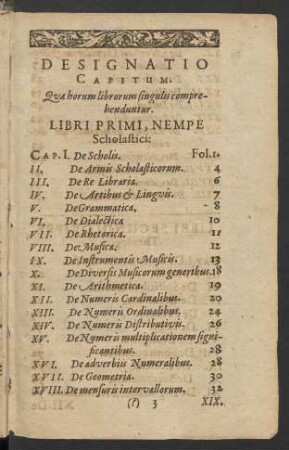 DESIGNATIO
CAPITUM.
Quæ horum librorum singulis compre-
henduntur.
LIBRI PRIMI, NEMPE
Scholastici:
CAP. I. De Scholis. Fol. 1.
II. De Armis Scholasticorum. 4
III. De Re Libraria. 6
IV. De Artibus & Linguis. 7
V. De Grammatica. 8
VI. De Dialectica 10
VII. De Rhetorica. 11
VIII. De Musica. 12
IX. De Instrumentis Musicis. 13
X. De Diversis Musicorum generibus. 18
XI. De Arithmetica. 19
XII. De Numeris Cardinalibus. 20
XIII. De Numeris Ordinalibus. 24
XIV. De Numeris Distributivis. 26
XV. De Numeris multiplicationem signi-
ficantibus. 28
XVI. De adverbiis Numeralibus. 28
XVII. De Geometria. 30
XVIII. De mensuris intervallorum. 32
(?) 3 XIX.